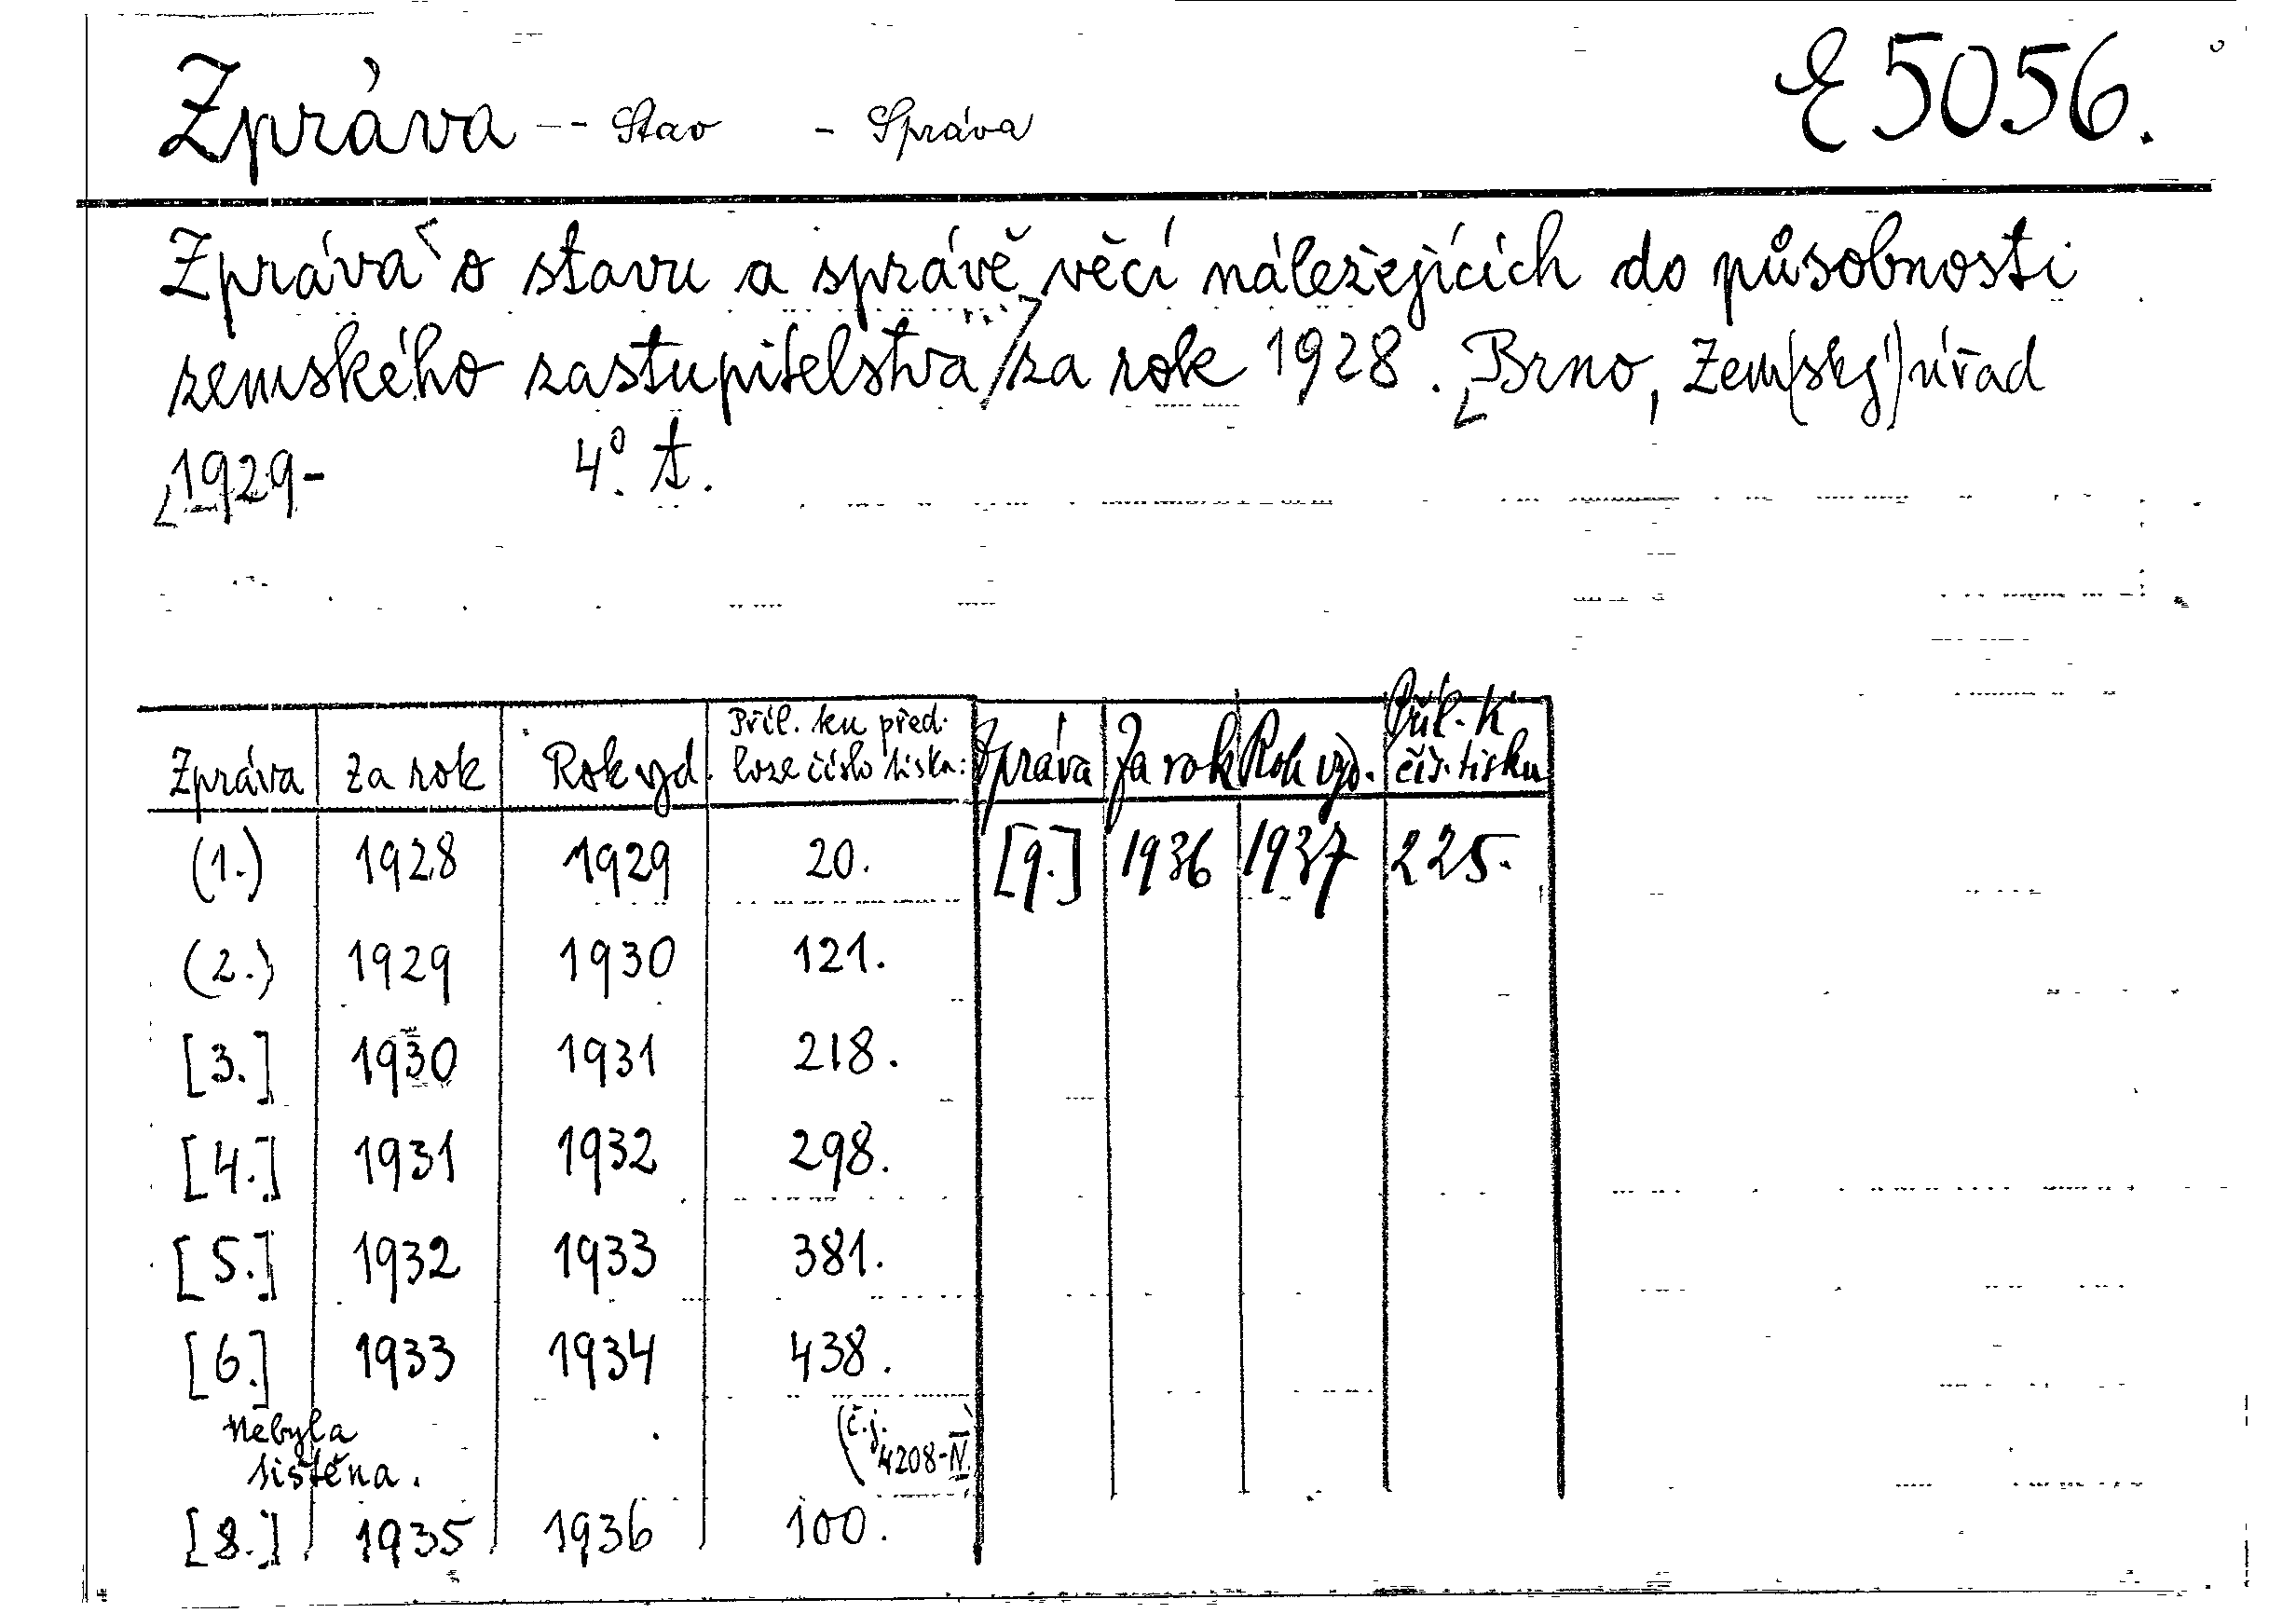 Zpráva -- Stav - Správa E 5056.
Zpráva o stavu a správě věcí náležejících do působnosti
zemského zastupitelstva / za rok 1928. Brno, Zem(ský) úřad
1929- 4° t.
Zpráva | Za rok | Rok vyd. | Příl. ku před- loze číslo tisku: | Zpráva | Za rok | Rok vyd. | Příl. k čís. tisku
(1.) 1928 1929 20. [9.] 1936 1937 225.
(2.) 1929 1930 121.
[3.] 1930 1931 218.
[4.] 1931 1932 298.
[5.] 1932 1933 381.
[6.] 1933 1934 438.
Nebyla (č.j.
tištěna. 4208-IV.
[8.] 1935 1936 100.